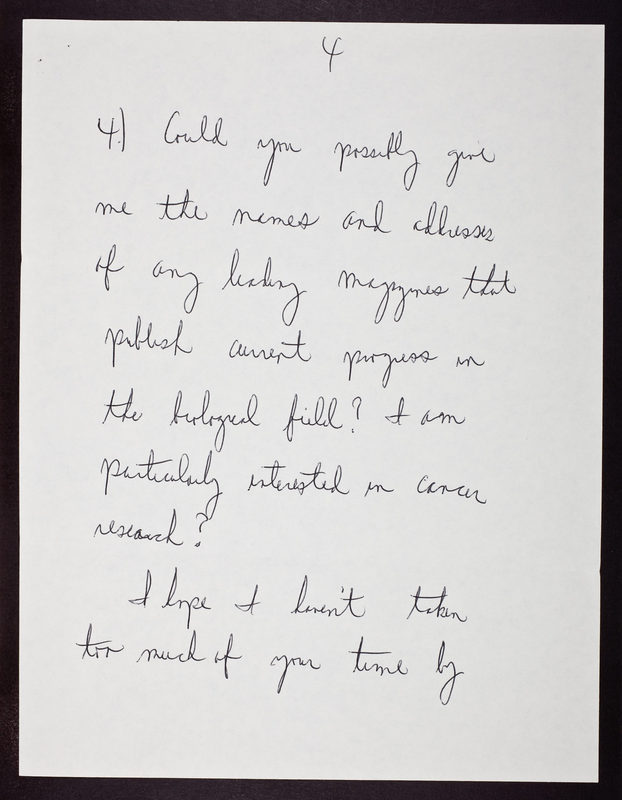 4
4.) Could you possibly give
me the names and addresses
of any leading magazines that
publish current progress in
the biological field? I am
particularly interested in cancer
research?
I hope I haven't taken
too much of your time by